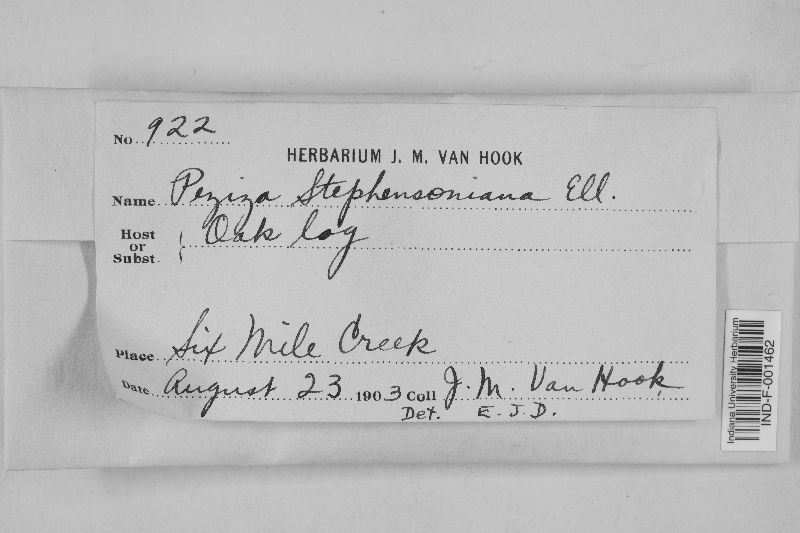 No 922
HERBARIUM J. M. VAN HOOK
Name Peziza Stephensoniana Ell.
Host or Subst. Oak log
Place Six Mile Creek
Date August 23 1903 Coll J. M. Van Hook
Det. E. J. D.
Indiana University Herbarium
IND-F-001462